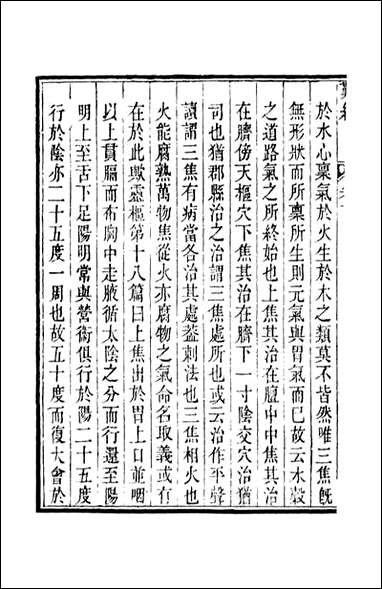 於水心稟氣於火生於木之類莫不皆然唯三焦旣
無形狀而所稟所生則元氣與胃氣而已故云水穀
之道路氣之所終始也上焦其治在膻中中焦其治
在臍傍天樞穴下焦其治在臍下一寸陰交穴治猶
司也猶郡縣治之治謂三焦處所也或云治作平聲
讀謂三焦有病當各治其處葢刺法也三焦相火也
火能腐熟萬物焦從火亦腐物之氣命名取義或有
在於此歟靈樞第十八篇曰上焦出於胃上口並咽
以上貫膈而布胸中走腋循太陰之分而行還至陽
明上至舌下足陽明常與營衞俱行於陽二十五度
行於陰亦二十五度一周也故五十度而復大會於